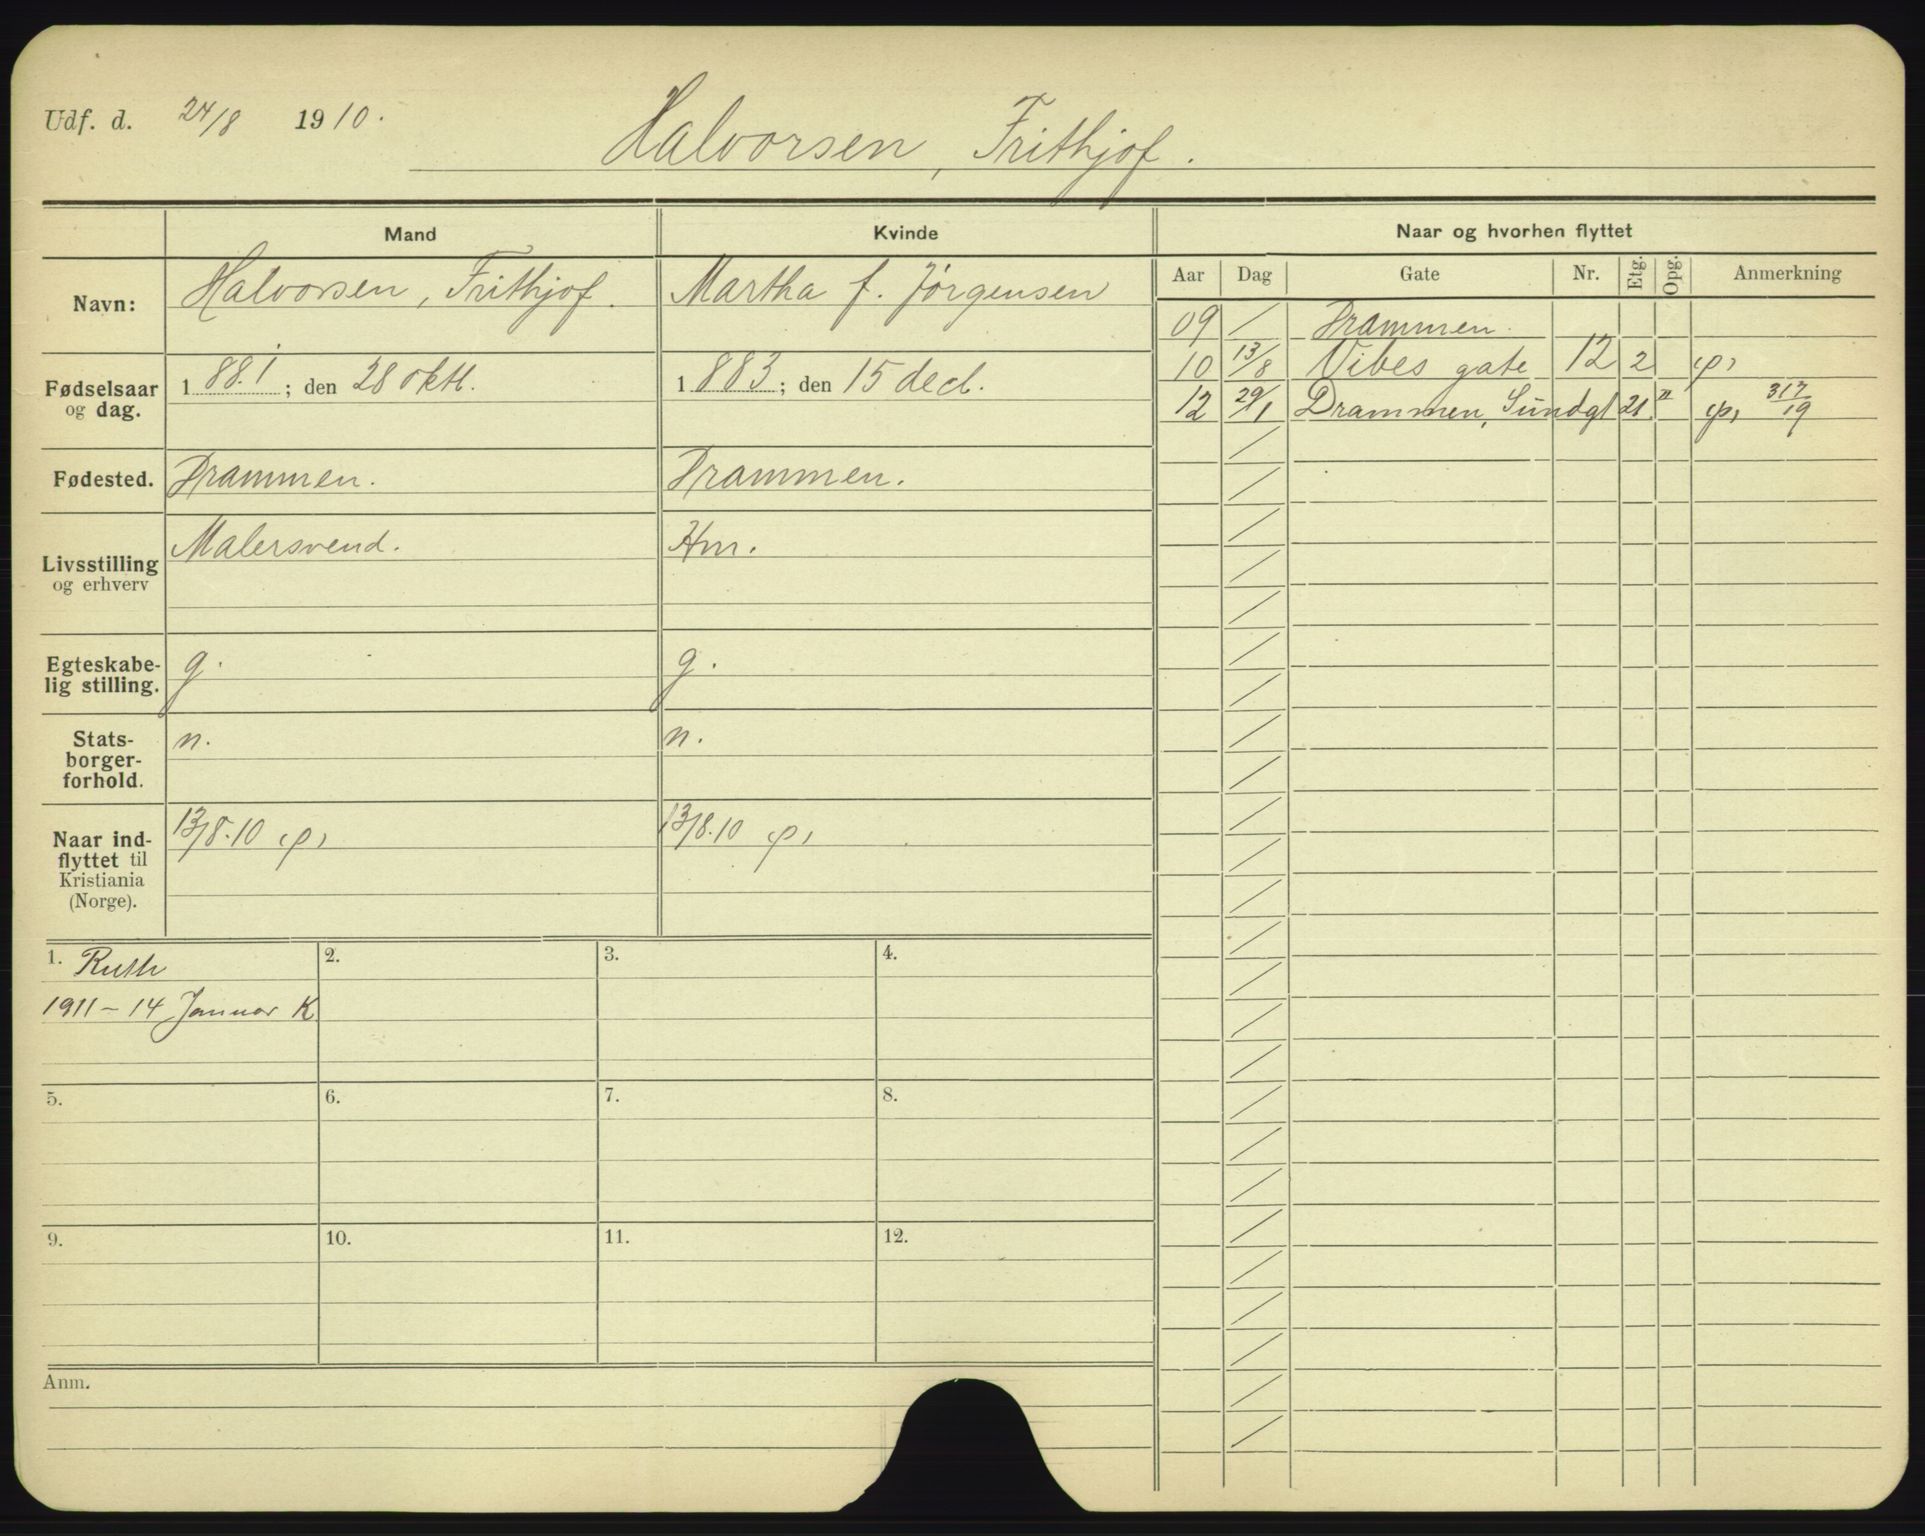 Udf. d. 24/8 1910.
Halvorsen, Frithjof.
Mand
Kvinde
Naar og hvorhen flyttet
Navn:
Halvorsen, Frithjof.
Martha f. Jørgensen
Aar Dag Gate Nr. Etg. Opg. Anmerkning
09 / Drammen.
10 13/8 Vibes gate 12 2 φ,
12 29/1 Drammen, Sundgt 21 " φ, 317/19
Fødselsaar og dag.
1 88.1 ; den 28 oktl.
1 883 ; den 15 decl.
Fødested.
Drammen.
Drammen.
Livsstilling og erhverv
Malersvend.
Hm.
Egteskabe-
lig stilling.
g.
g.
Stats-
borger-
forhold.
n.
n.
Naar ind-
flyttet til
Kristiania
(Norge).
13/8.10 φ,
13/8.10 φ,
1. Ruth
1911 – 14 Januar K.
2.
3.
4.
5.
6.
7.
8.
9.
10.
11.
12.
Anm.